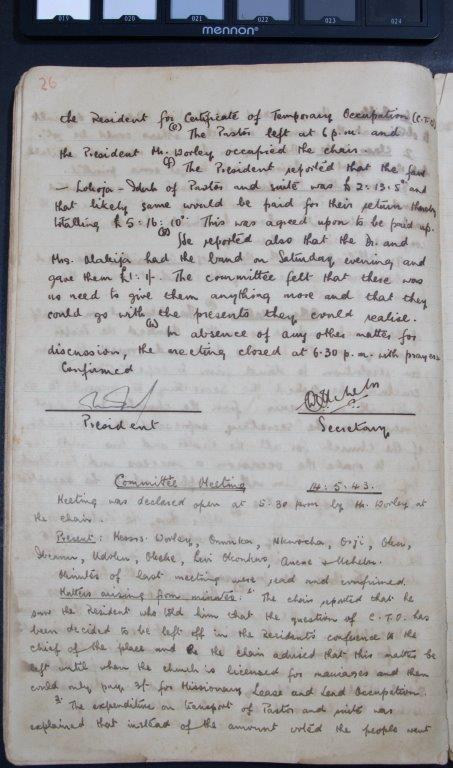 019 020 021 022 023 024
mennon
26
the Resident for Certificate of Temporary Occupation (C.T.O)
(e) The Pastor left at 6 p.m. and
the President Mr. Worley occupied the chair.
(f) The President reported that the fare
– Lokoja – Idah of Pastor and suite was £2:13:5d and
that likely same would be paid for their return thereby
totalling £5:16:10d. This was agreed upon to be paid up.
(g) He reported also that the Dr. and
Mrs. Alakija had the band on Saturday evening and
gave them £1:1/-. The committee felt that there was
no need to give them anything more and that they
could go with the presents they could realise.
(h) In absence of any other matter for
discussion, the meeting closed at 6.30 p.m. with prayers
Confirmed
President Secretary
Committee Meeting 14:5:43.
Meeting was declared open at 5:30 p.m. by Mr. Worley at
the chair.
Present: Messrs. Worley, Nkwocha, Orji, Okon,
Udoh, Okeke, Levi Okonkwo,
Minutes of last meeting were read and confirmed.
Matters arising from minutes: The chair reported that he
saw the Resident who told him that the question of C.T.O. has
been decided to be left off in the Residents conference to the
chief of the place and the chair advised that this matter be
left until when the church is licensed for marriages and then
could only pay 3/- for Missionary Lease and Land Occupation.
3. The expenditure on transport of Pastor and suite was
explained that instead of the amount voted the people went